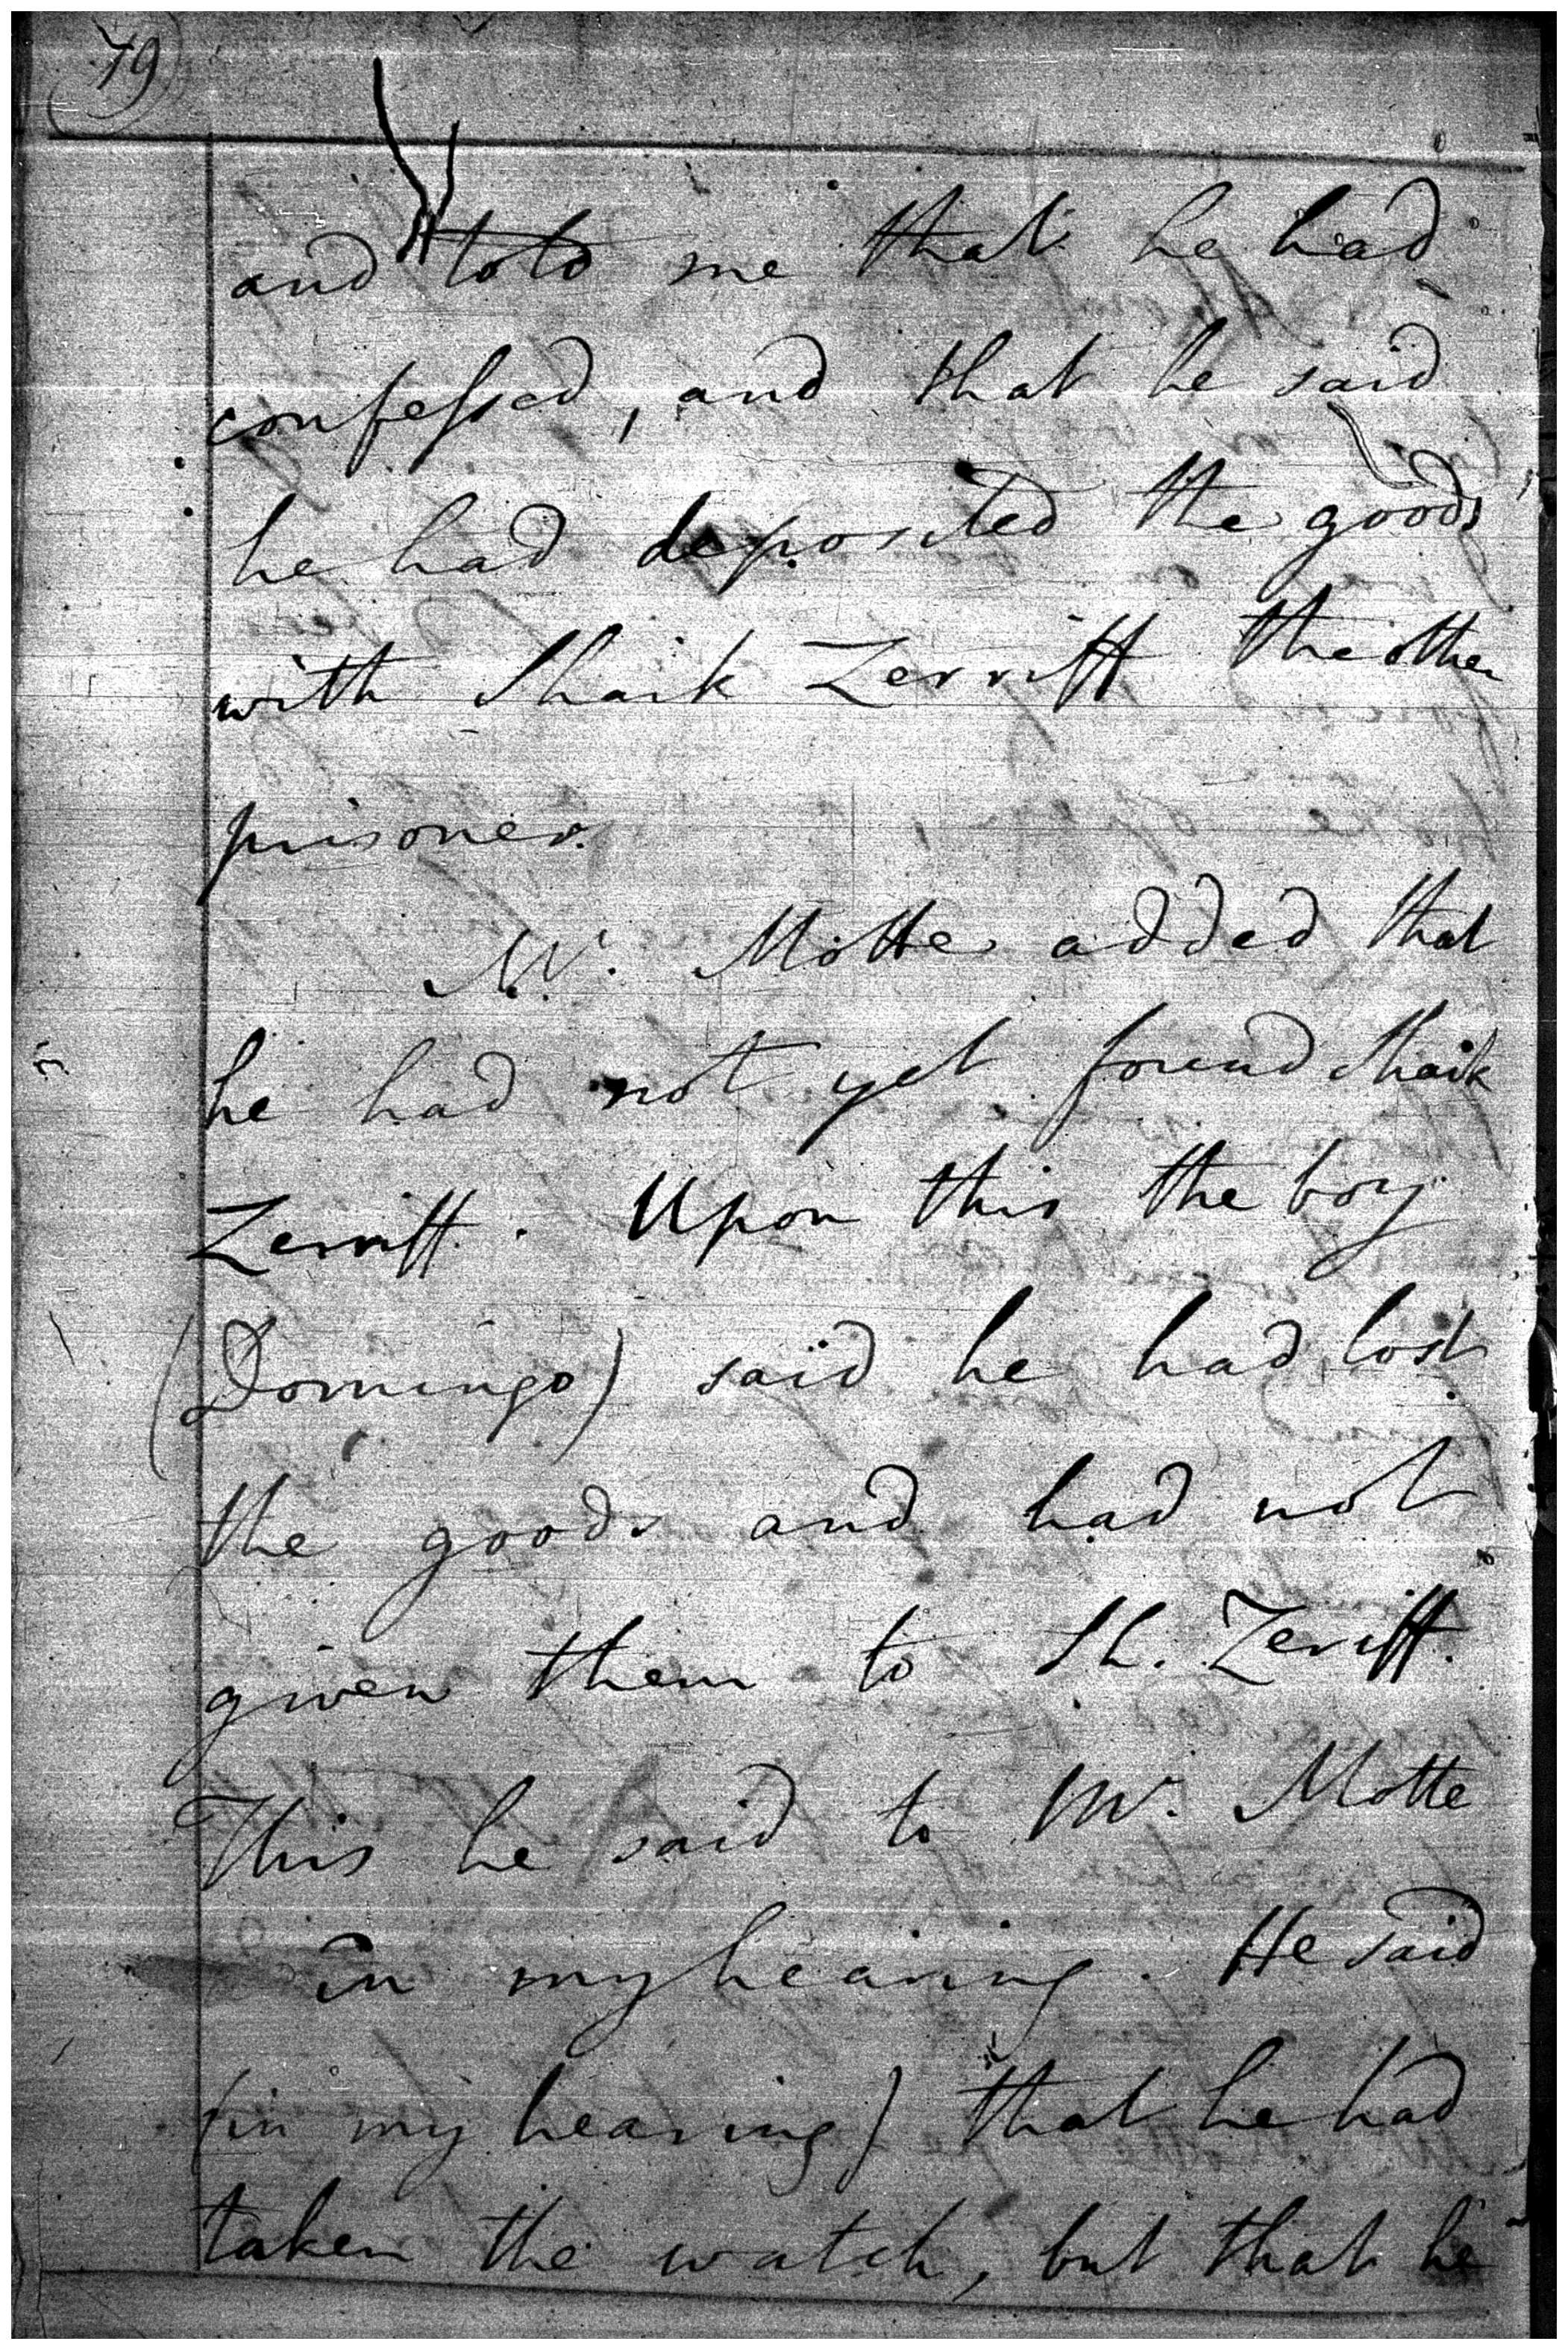 79
and told me that he had
confessed, and that he said
he had deposited the goods
with Shaik Zerriff the other
prisoner.
Mr. Motte added that
he had not yet found Shaik
Zerriff. Upon this the boy
(Domingo) said he had lost
the goods and had not
given them to Sh. Zeriff.
This he said to Mr. Motte
in my hearing. He said
(in my hearing) that he had
taken the watch, but that he